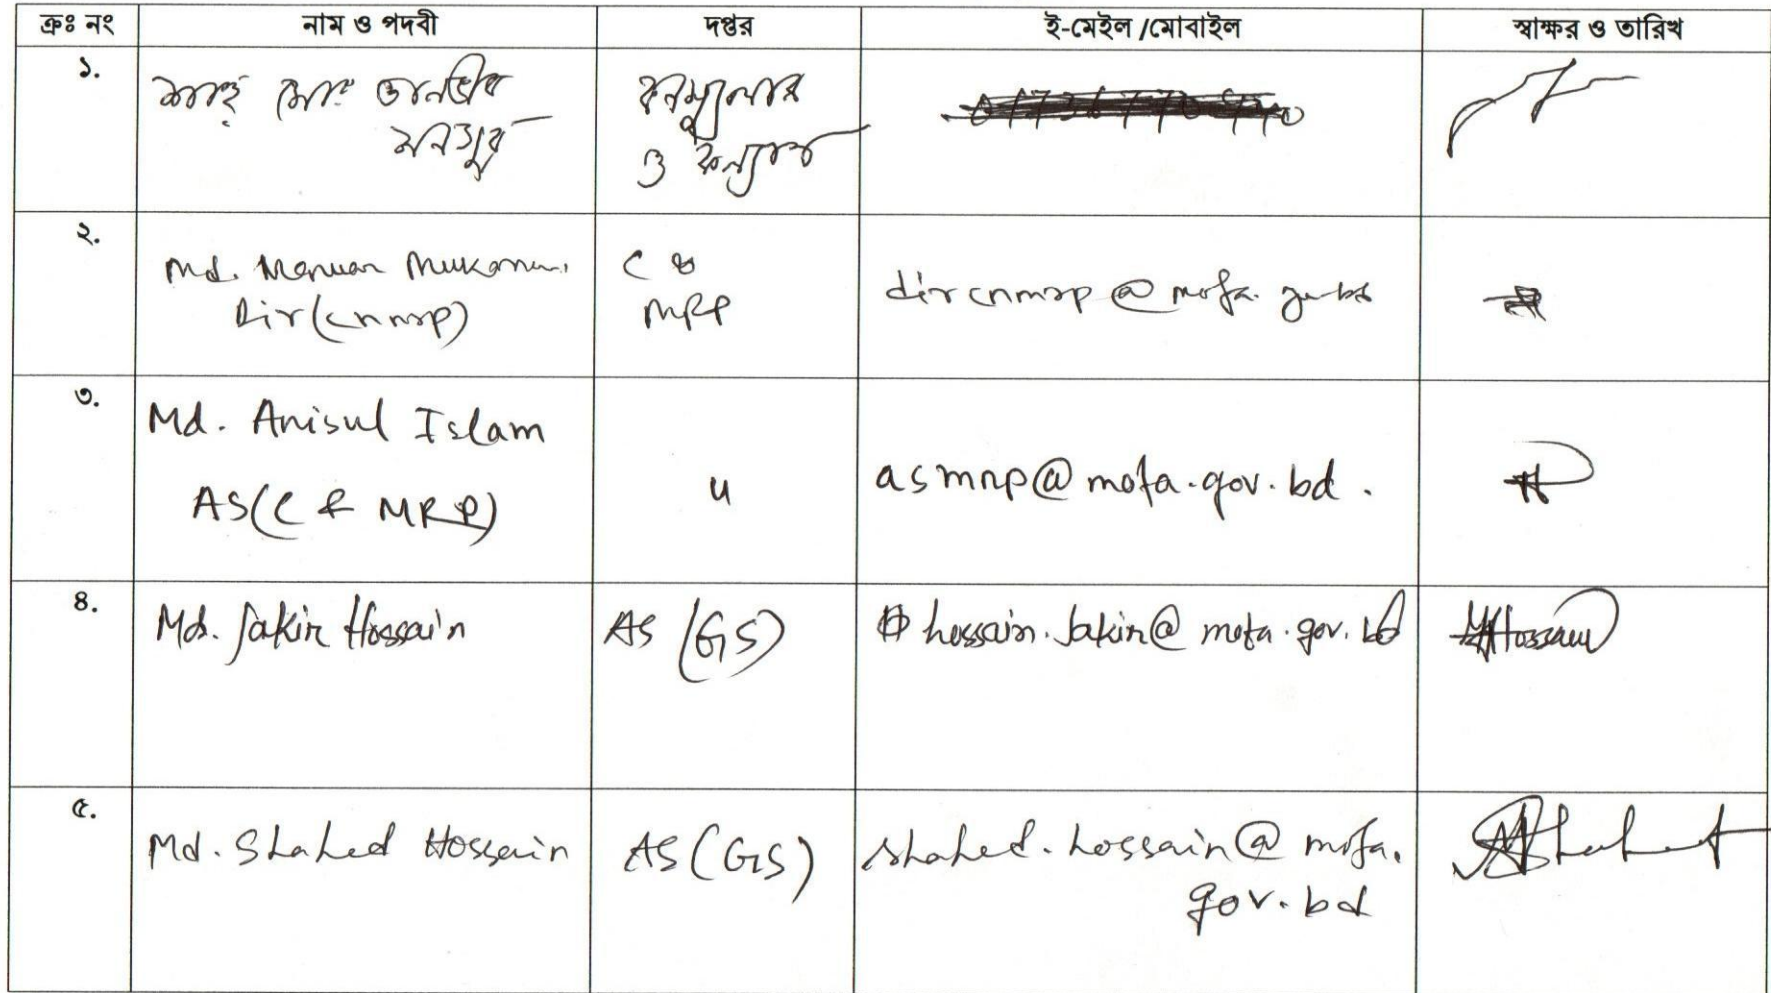 ক্রঃ নং নাম ও পদবী দপ্তর ই-মেইল /মোবাইল স্বাক্ষর ও তারিখ
১.
শাহ্ মোঃ তানভীর
মনসুর
কনস্যুলার
ও কল্যাণ
২.
Md.
Dir (cnmrp)
C &
MRP
dircnmrp@mofa.gov.bd
৩.
Md. Anisul Islam
AS(C & MRP)
"
asmrp@mofa.gov.bd.
৪.
Md. Jakir Hossain
AS (GS)
hossain.jakir@mofa.gov.bd
MJHossain
৫.
Md. Shahed Hossain
AS (GS)
shahed.hossain@mofa.
gov.bd